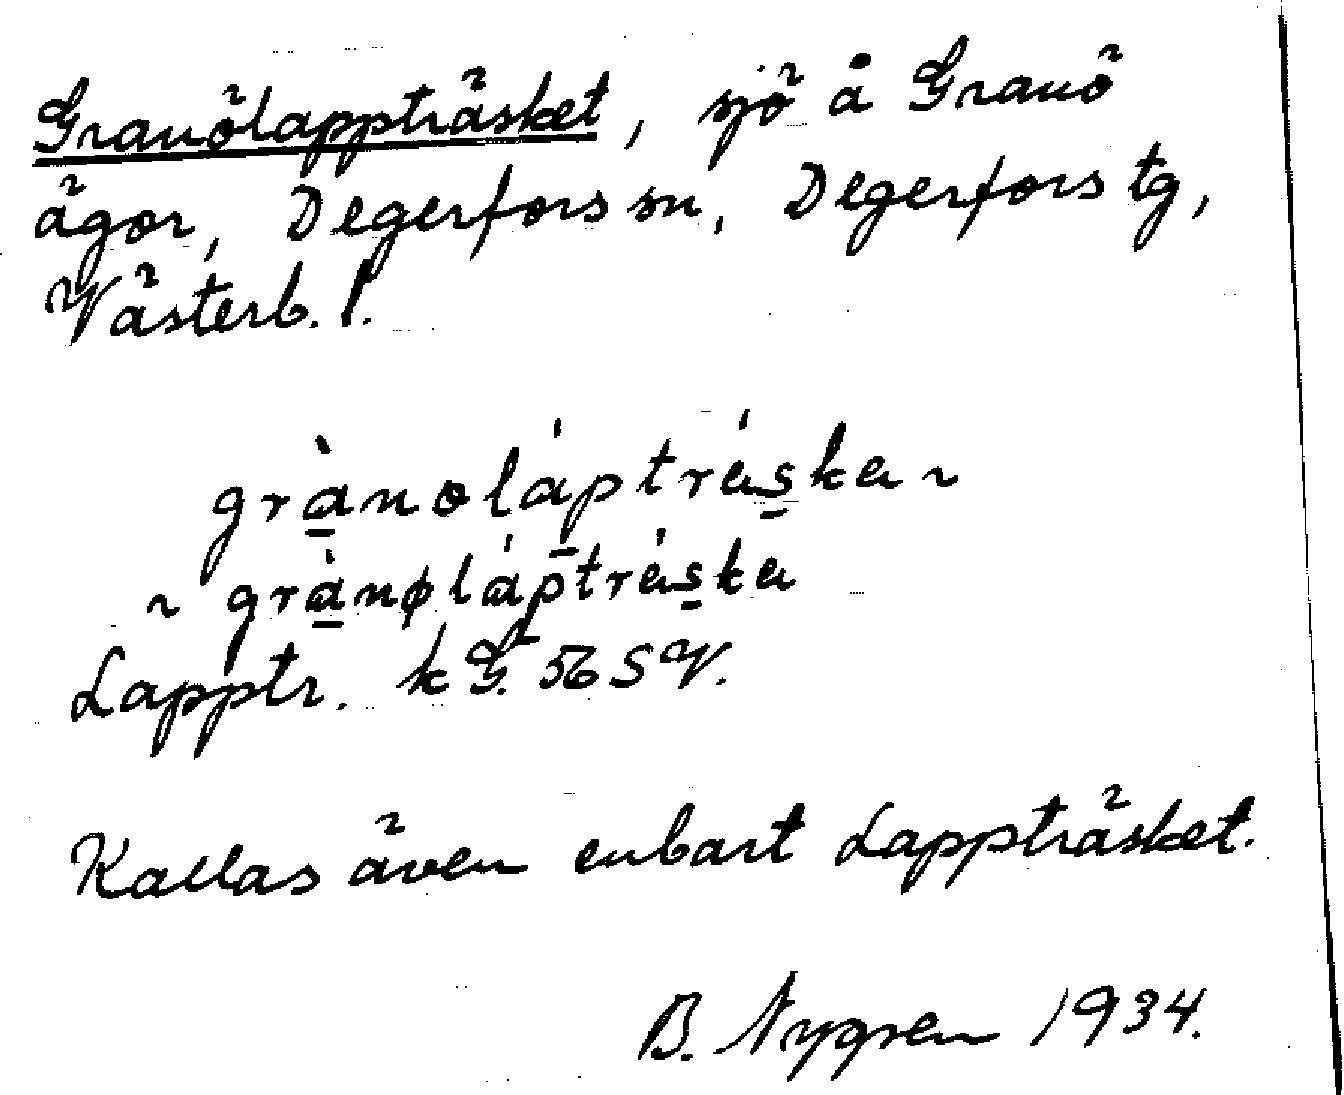 Granölappträsket, sjö å Granö
ägor, Degerfors sn, Degerfors tg,
Västerb. l.
grànoláptráska ~
~ grànøláptráska
Lapptr. k G. 56 SV.
Kallas även enbart Lappträsket.
B. Nygren 1934.